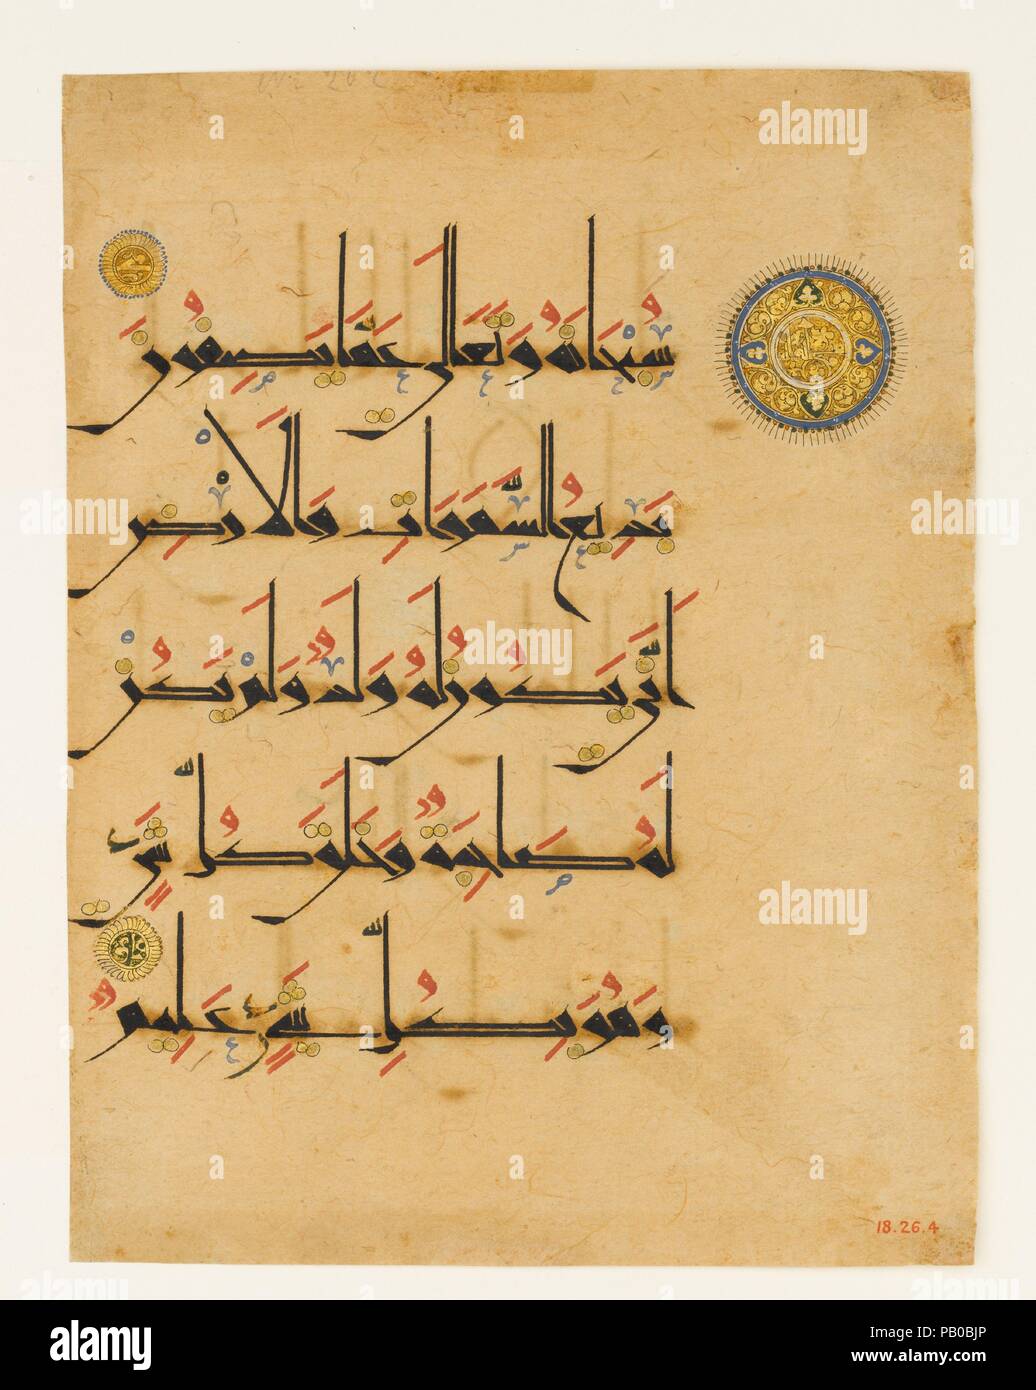 سُبْحَانَهُ وَتَعَالَى عَمَّا يَصِفُونَ
بَدِيعُ السَّمَوَاتِ وَالْأَرْضِ
أَنَّى يَكُونُ لَهُ وَلَدٌ وَلَمْ تَكُنْ
لَهُ صَاحِبَةٌ وَخَلَقَ كُلَّ شَيْءٍ
وَهُوَ بِكُلِّ شَيْءٍ عَلِيمٌ
18.26.4
alamy
alamy
alamy
alamy
a
a
a
a
a
a
alamy
Image ID: PB0BJP
www.alamy.com